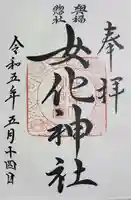 奉拝
惣社
女化神社
令和五年 五月十四日